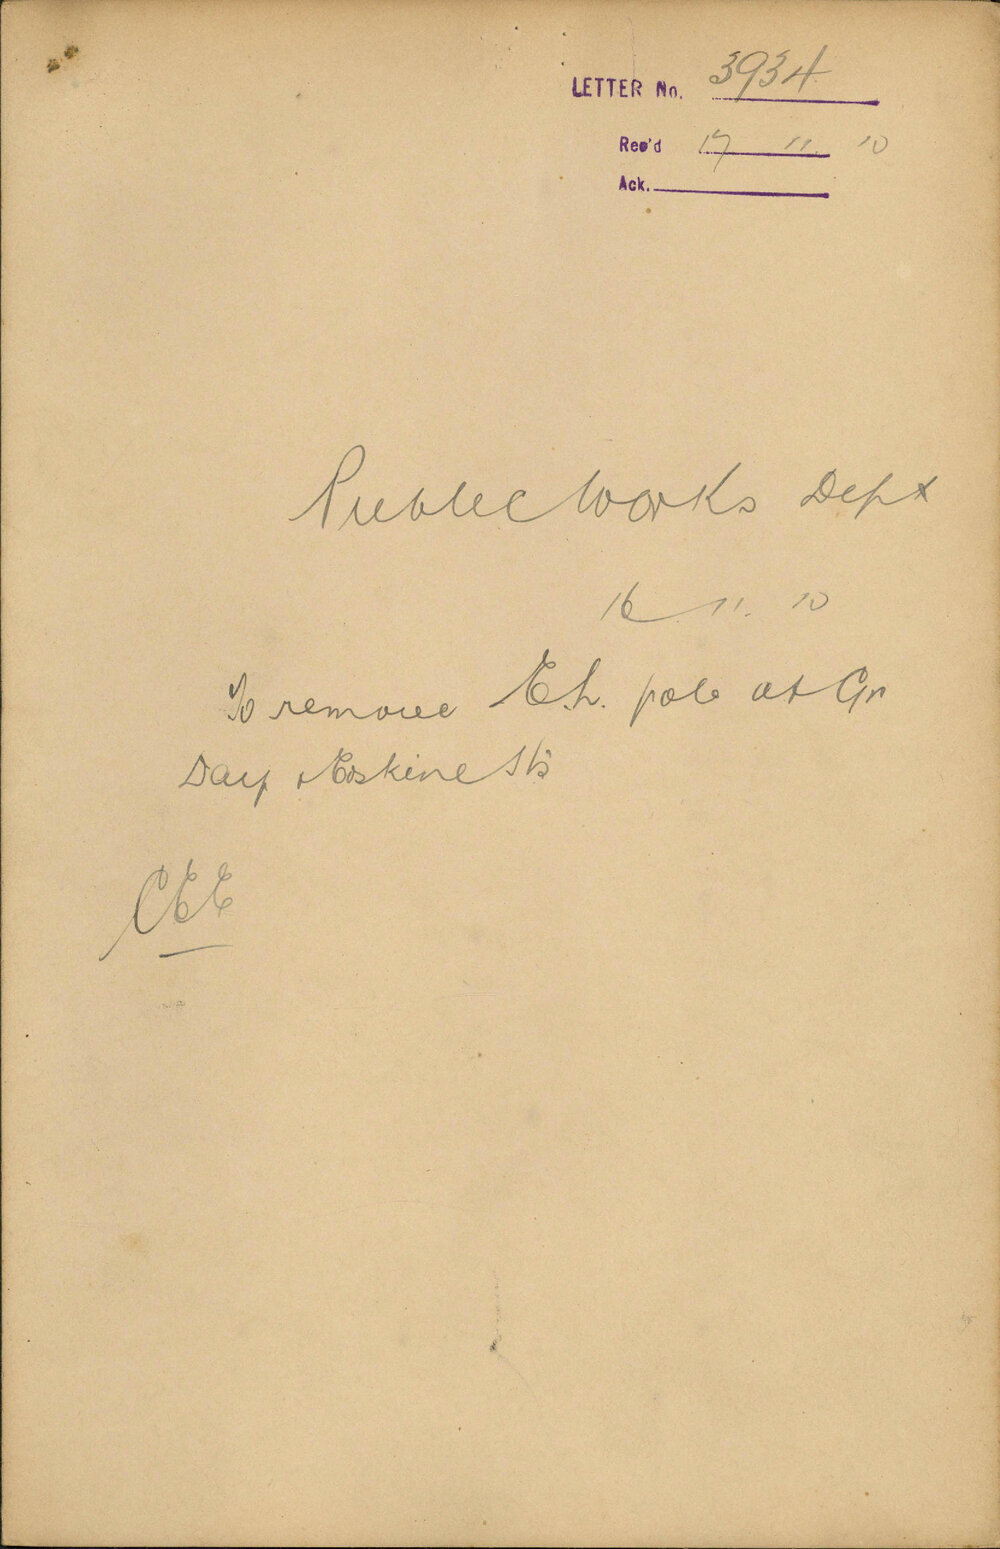 LETTER No. 3934
Rec'd 17 11. 10
Ack.
Public Works Dept
16. 11. 10
To remove E.L. pole at Cnr
Day & Erskine Sts
CEE